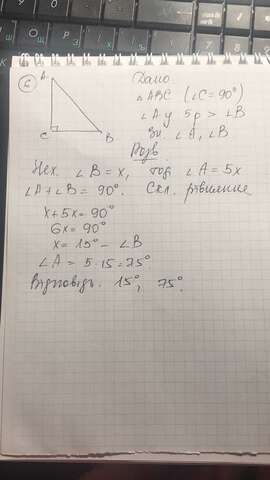 6
A
C
B
Дано
△ABC (∠C=90°)
∠A у 5р > ∠B
Зн. ∠A, ∠B
Розв
Нех. ∠B = x, тоді ∠A = 5x
∠A + ∠B = 90°. Скл. рівняння
x+5x=90°
6x=90°
x=15° – ∠B
∠A = 5·15=75°
Відповідь. 15°, 75°.